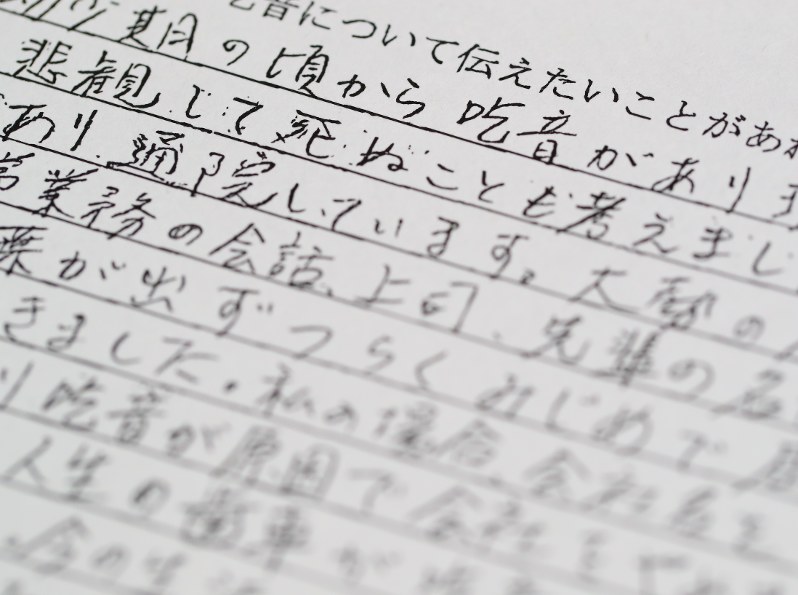 吃音について伝えたいことがあ
期の頃から吃音があります
悲観して死ぬことも考えまし
あり通院しています。大勢の
営業務の会話、上司、先輩の名
葉が出ずつらくみじめで
きました。私の場合、会社名を
り吃音が原因で会社を
人生の歯車が
今の生活